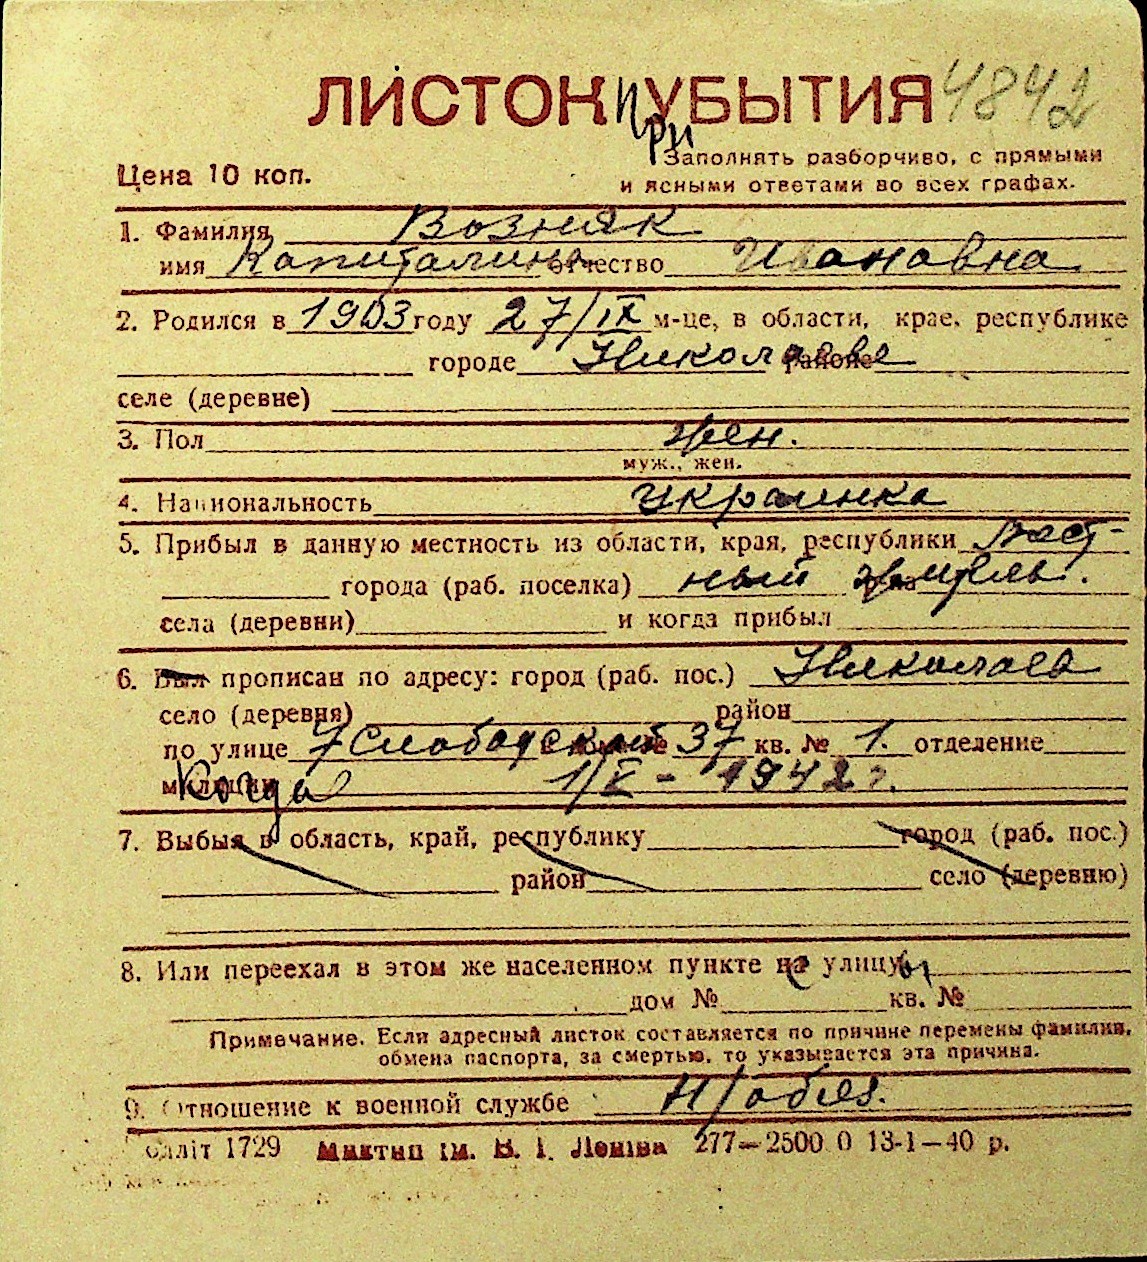 ЛИСТОК при УБЫТИЯ 4842
Цена 10 коп.
Заполнять разборчиво, с прямыми
и ясными ответами во всех графах.
1. Фамилия Возняк
имя Капиталина отчество Ивановна
2. Родился в 1903 году 27/IX м-це, в области, крае, республике
городе Николаеве районе
селе (деревне)
3. Пол жен.
муж., жен.
4. Национальность украинка
5. Прибыл в данную местность из области, края, республики
города (раб. поселка) житель.
села (деревни) и когда прибыл
6. Был прописан по адресу: город (раб. пос.) Николаев
село (деревня) район
по улице 7 Слободской № 37 кв. № 1. отделение
милиции Когда 1/X - 1942 г.
7. Выбыл в область, край, республику город (раб. пос.)
район село (деревню)
8. Или переехал в этом же населенном пункте с улицы
дом № кв. №
Примечание. Если адресный листок составляется по причине перемены фамилии,
обмена паспорта, за смертью, то указывается эта причина.
9. Отношение к военной службе н/обяз.
1729 им. В. І. Леніна 277—2500 0 13-1—40 р.